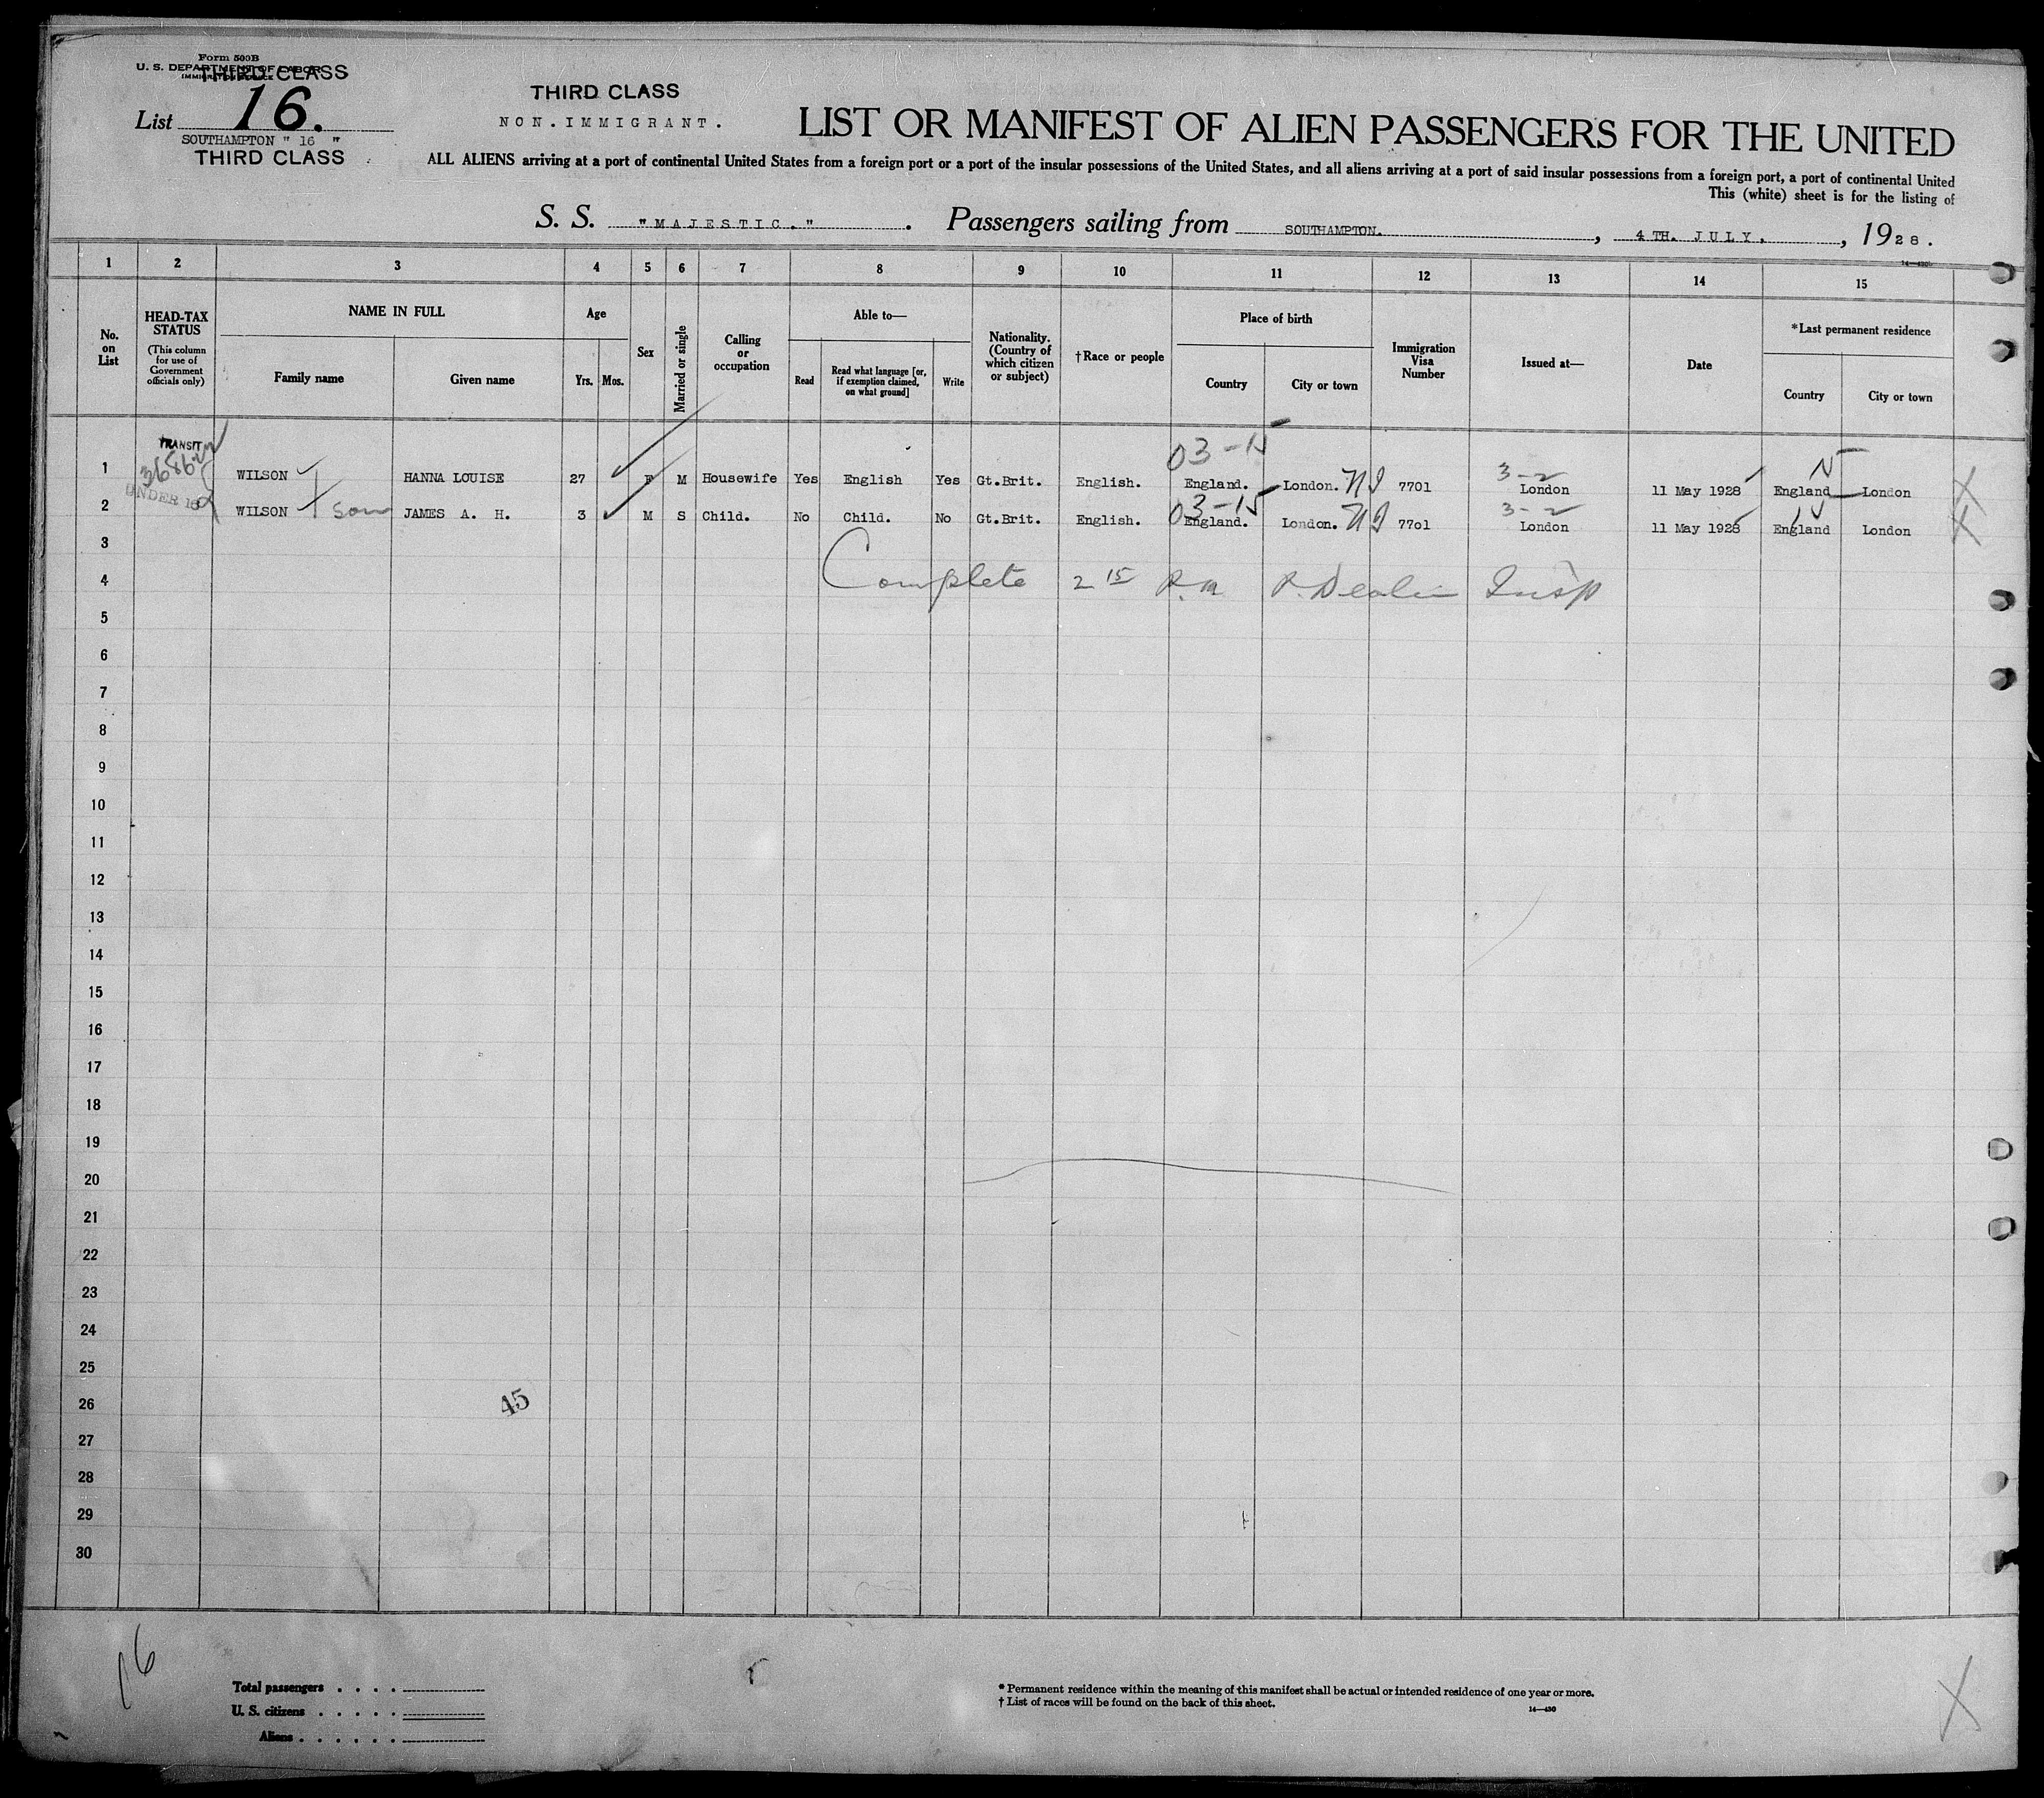 Form 500B
U. S. DEPARTMENT OF LABOR
THIRD CLASS
IMMIGRATION SERVICE
List 16.
SOUTHAMPTON " 16 "
THIRD CLASS
THIRD CLASS
NON.IMMIGRANT.
LIST OR MANIFEST OF ALIEN PASSENGERS FOR THE UNITED
ALL ALIENS arriving at a port of continental United States from a foreign port or a port of the insular possessions of the United States, and all aliens arriving at a port of said insular possessions from a foreign port, a port of continental United
This (white) sheet is for the listing of
S. S. "MAJESTIC." . Passengers sailing from SOUTHAMPTON. , 4 TH. JULY. , 1928.
14—430
1 2 3 4 5 6 7 8 9 10 11 12 13 14 15
No. on List
HEAD-TAX STATUS
(This column for use of Government officials only)
NAME IN FULL
Family name Given name
Age
Yrs. Mos.
Sex
Married or single
Calling or occupation
Able to—
Read Read what language [or, if exemption claimed, on what ground] Write
Nationality. (Country of which citizen or subject)
†Race or people
Place of birth
Country City or town
Immigration Visa Number
Issued at—
Date
*Last permanent residence
Country City or town
TRANSIT
03-15 3-2 N
1 WILSON HANNA LOUISE 27 F M Housewife Yes English Yes Gt.Brit. English. England. London. 7701 London 11 May 1928 England London
UNDER 16
03-15 3-2
2 WILSON son JAMES A. H. 3 M S Child. No Child. No Gt.Brit. English. England. London. 7701 London 11 May 1928 England London
3
4 Complete 2 15 P.m Insp
5
6
7
8
9
10
11
12
13
14
15
16
17
18
19
20
21
22
23
24
25
26
45
27
28
29
30
16
Total passengers . . . .
U. S. citizens . . . . .
Aliens . . . . . .
* Permanent residence within the meaning of this manifest shall be actual or intended residence of one year or more.
† List of races will be found on the back of this sheet.
14—430
X